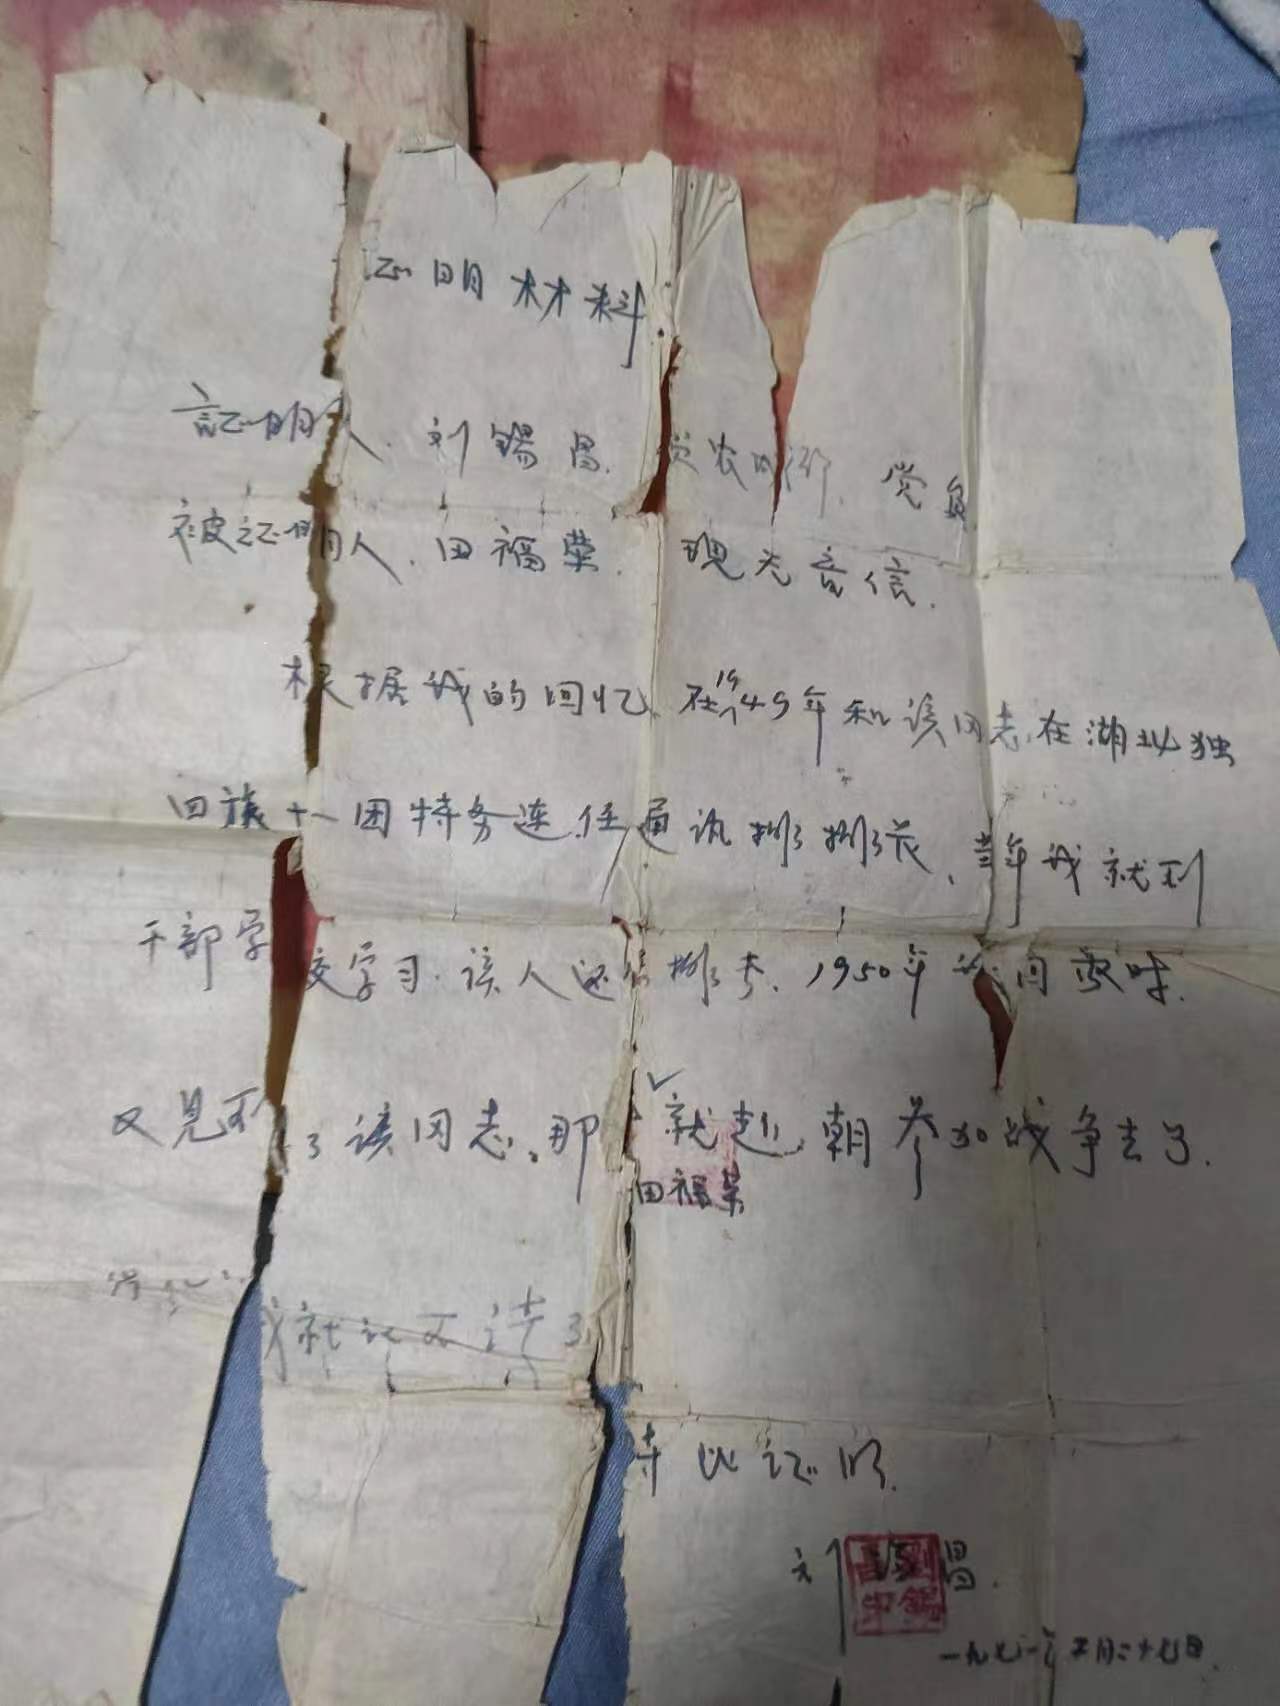 证明材料
証明人.刘锡昌. 党员
被证明人.田福荣. 现无音信.
根据我的回忆、在1949年和该同志、在湖北独
四旅十一团特务连任通讯 、当年我就到
干部学校学习.该人还 .1950年 间
又见到了该同志、那 就赴朝参加战争去了.
田福荣
我就记不清了
特此证明.
刘 昌.
一九七一年 月二十七日.